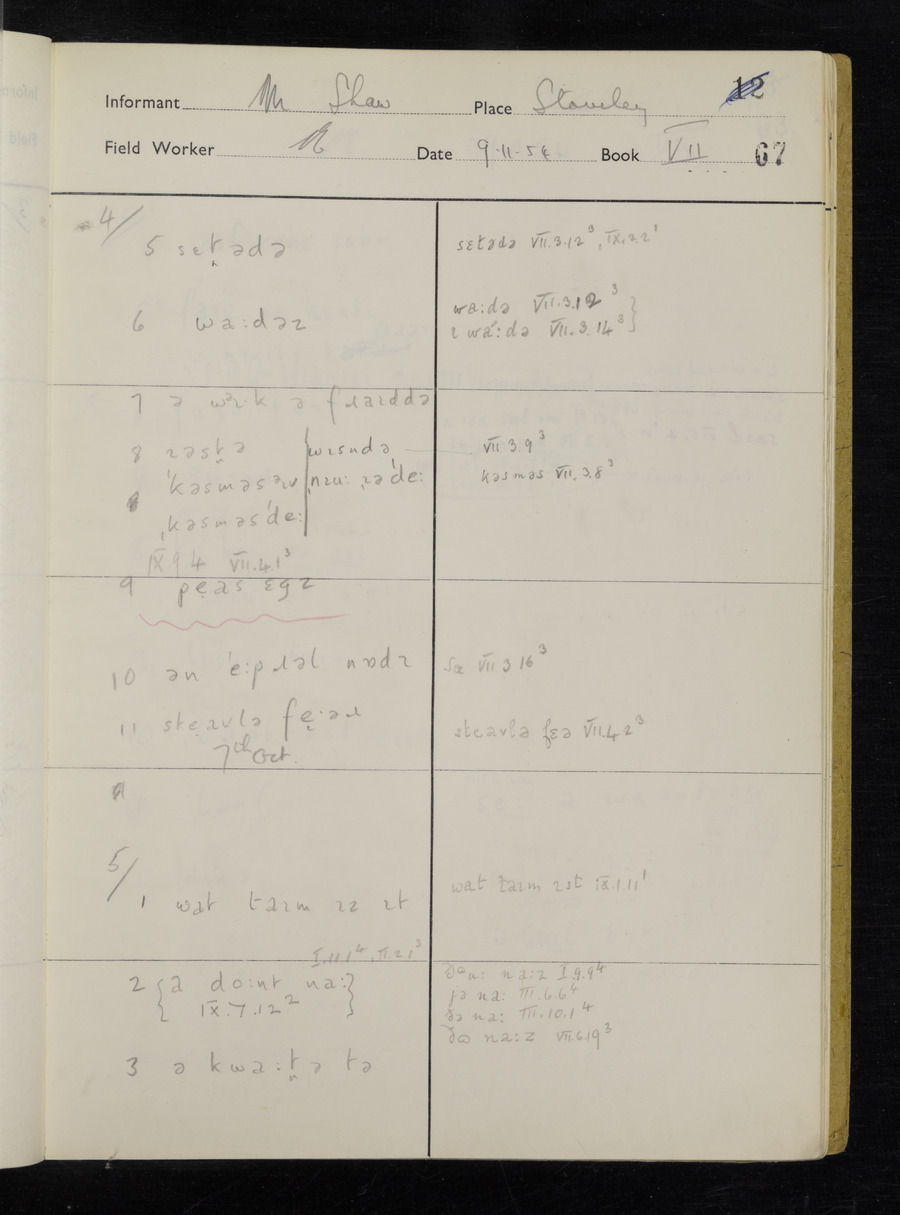 Informant Mr Shaw Place Staveley 12
Field Worker Date 9.11.54 Book VII 67
4/
5 sɛt̪ədə
sɛtədə VII.3.12³, IX.2.2¹
6 wa:dəz
wa:də VII.3.12³
wa:də VII.3.14³
7 ə wɪk ə fɹaɪddə
8 ɪəst̪ə
wɪsndə
VII.3.9³
ˈkəsməsɪv nɪu: ɪəˈde:
kəsməs VII.3.8³
ˌkəsməsˈde:
IX.9.4 VII.4.1³
9 peas ɛgz
10 ən ˈe:pɹəl nɒdɪ
VII 3 16³
11 steavlə fe:əɹ
steavlə fɛə VII.4.2³
7th Oct.
5/
1 wat taɪm ɪz ɪt
wat taɪm ɪst IX.1.11¹
I.11.1⁴, II.2.1³
2 {a do:nt na:}
na:z I.9.9⁴
IX.7.12²
jə na: III.6.6⁴
ðə na: III.10.1⁴
na:z VII.6.19³
3 ə kwa:t̪ə tə